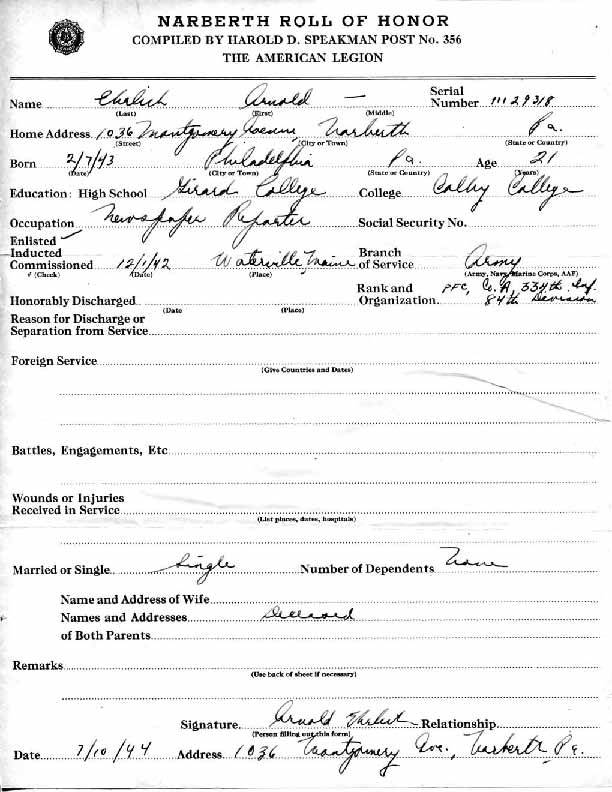 NARBERTH ROLL OF HONOR
COMPILED BY HAROLD D. SPEAKMAN POST No. 356
THE AMERICAN LEGION
Name Ehrlich Arnold — Serial Number 11129318
(Last) (First) (Middle)
Home Address 1036 Montgomery Avenue, Narberth Pa.
(Street) (City or Town) (State or Country)
Born 2/7/43 Philadelphia Pa. Age 21
(Date) (City or Town) (State or Country) (Years)
Education: High School Girard College College Colby College
Occupation Newspaper Reporter Social Security No.
Enlisted ✓
Inducted
Commissioned 12/1/42 Waterville, Maine Branch of Service Army
# (Check) (Date) (Place) (Army, Navy, Marine Corps, AAF)
Rank and Organization PFC, Co. A, 334th Inf.
84th Division
Honorably Discharged
(Date (Place)
Reason for Discharge or
Separation from Service
Foreign Service
(Give Countries and Dates)
Battles, Engagements, Etc
Wounds or Injuries
Received in Service
(List places, dates, hospitals)
Married or Single Single Number of Dependents None
Name and Address of Wife
Names and Addresses Deceased
of Both Parents
Remarks
(Use back of sheet if necessary)
Signature Arnold Ehrlich Relationship
(Person filling out this form)
Date 7/10/44 Address 1036 Montgomery Ave., Narberth Pa.